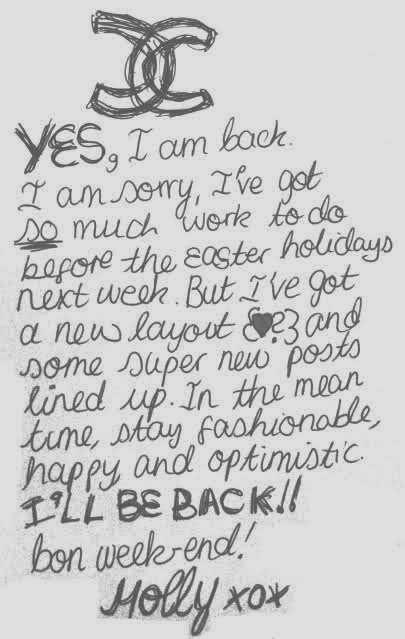 YES, I am back.
I am sorry, I've got
so much work to do
before the easter holidays
next week. But I've got
a new layout {♥?} and
some super new posts
lined up. In the mean
time, stay fashionable,
happy and optimistic.
I'LL BE BACK!!
bon week-end!
Molly xox